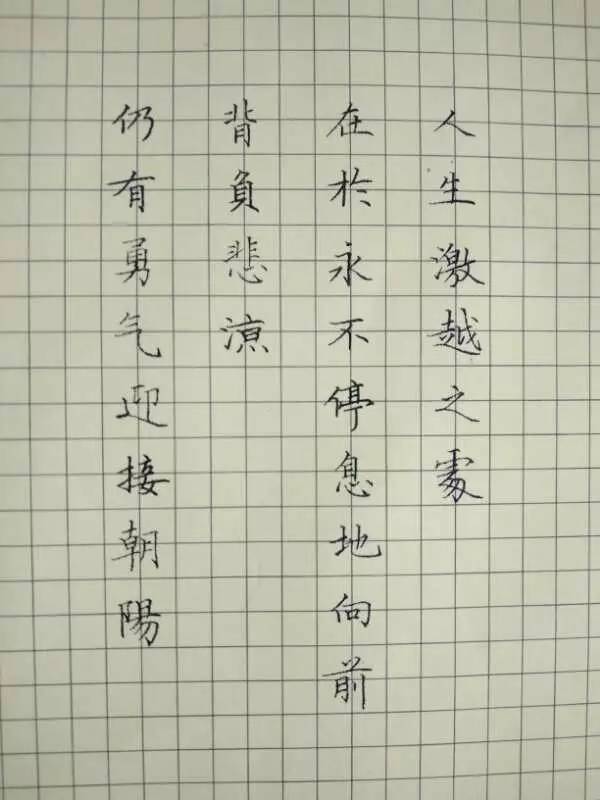 人生激越之處
在於永不停息地向前
背負悲涼
仍有勇气迎接朝陽